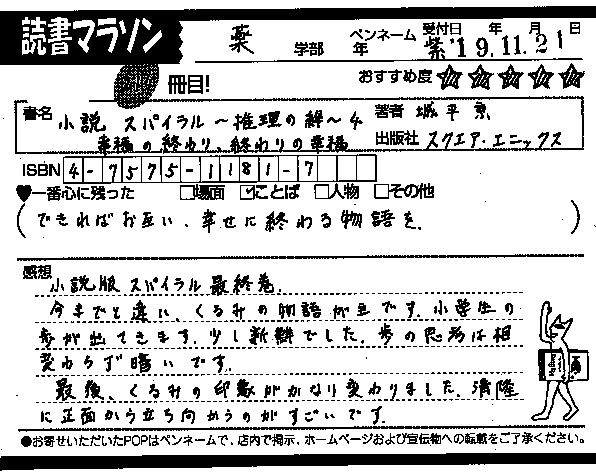 読書マラソン
薬 学部 年
ペンネーム 紫
受付日 年 月 日
'19.11.21
冊目!
おすすめ度 ☆☆☆☆☆
書名 小説 スパイラル～推理の絆～4
幸福の終わり、終わりの幸福
著者 城平 京
出版社 スクエア・エニックス
ISBN 4-7575-1181-7
♥一番心に残った □場面 ☑ことば □人物 □その他
(できればお互い、幸せに終わる物語を。)
感想
小説版スパイラル最終巻。
今までと違い、くるみの物語が主です。小学生の
歩が出てきます。少し新鮮でした。歩の思考は相
変わらず暗いです。
最後、くるみの印象がかなり変わりました。清隆
に正面から立ち向かうのがすごいです。
●お寄せいただいたPOPはペンネームで、店内で掲示、ホームページおよび宣伝物への転載をご了承ください。